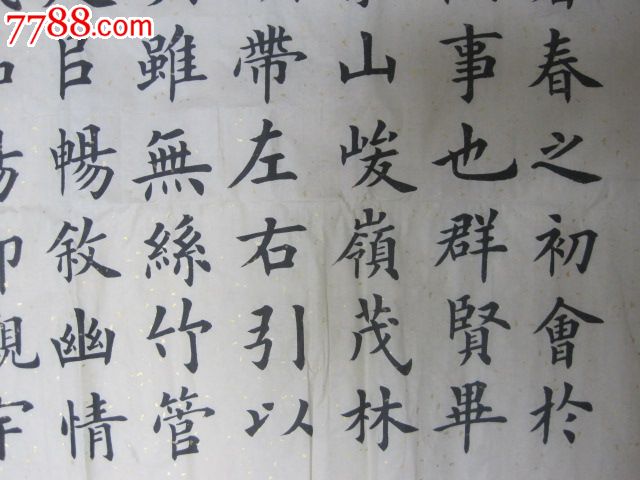 7788.com
春之初會於
事也群賢畢
山峻嶺茂林
帶左右引以
雖無絲竹管
㠯暢敘幽情